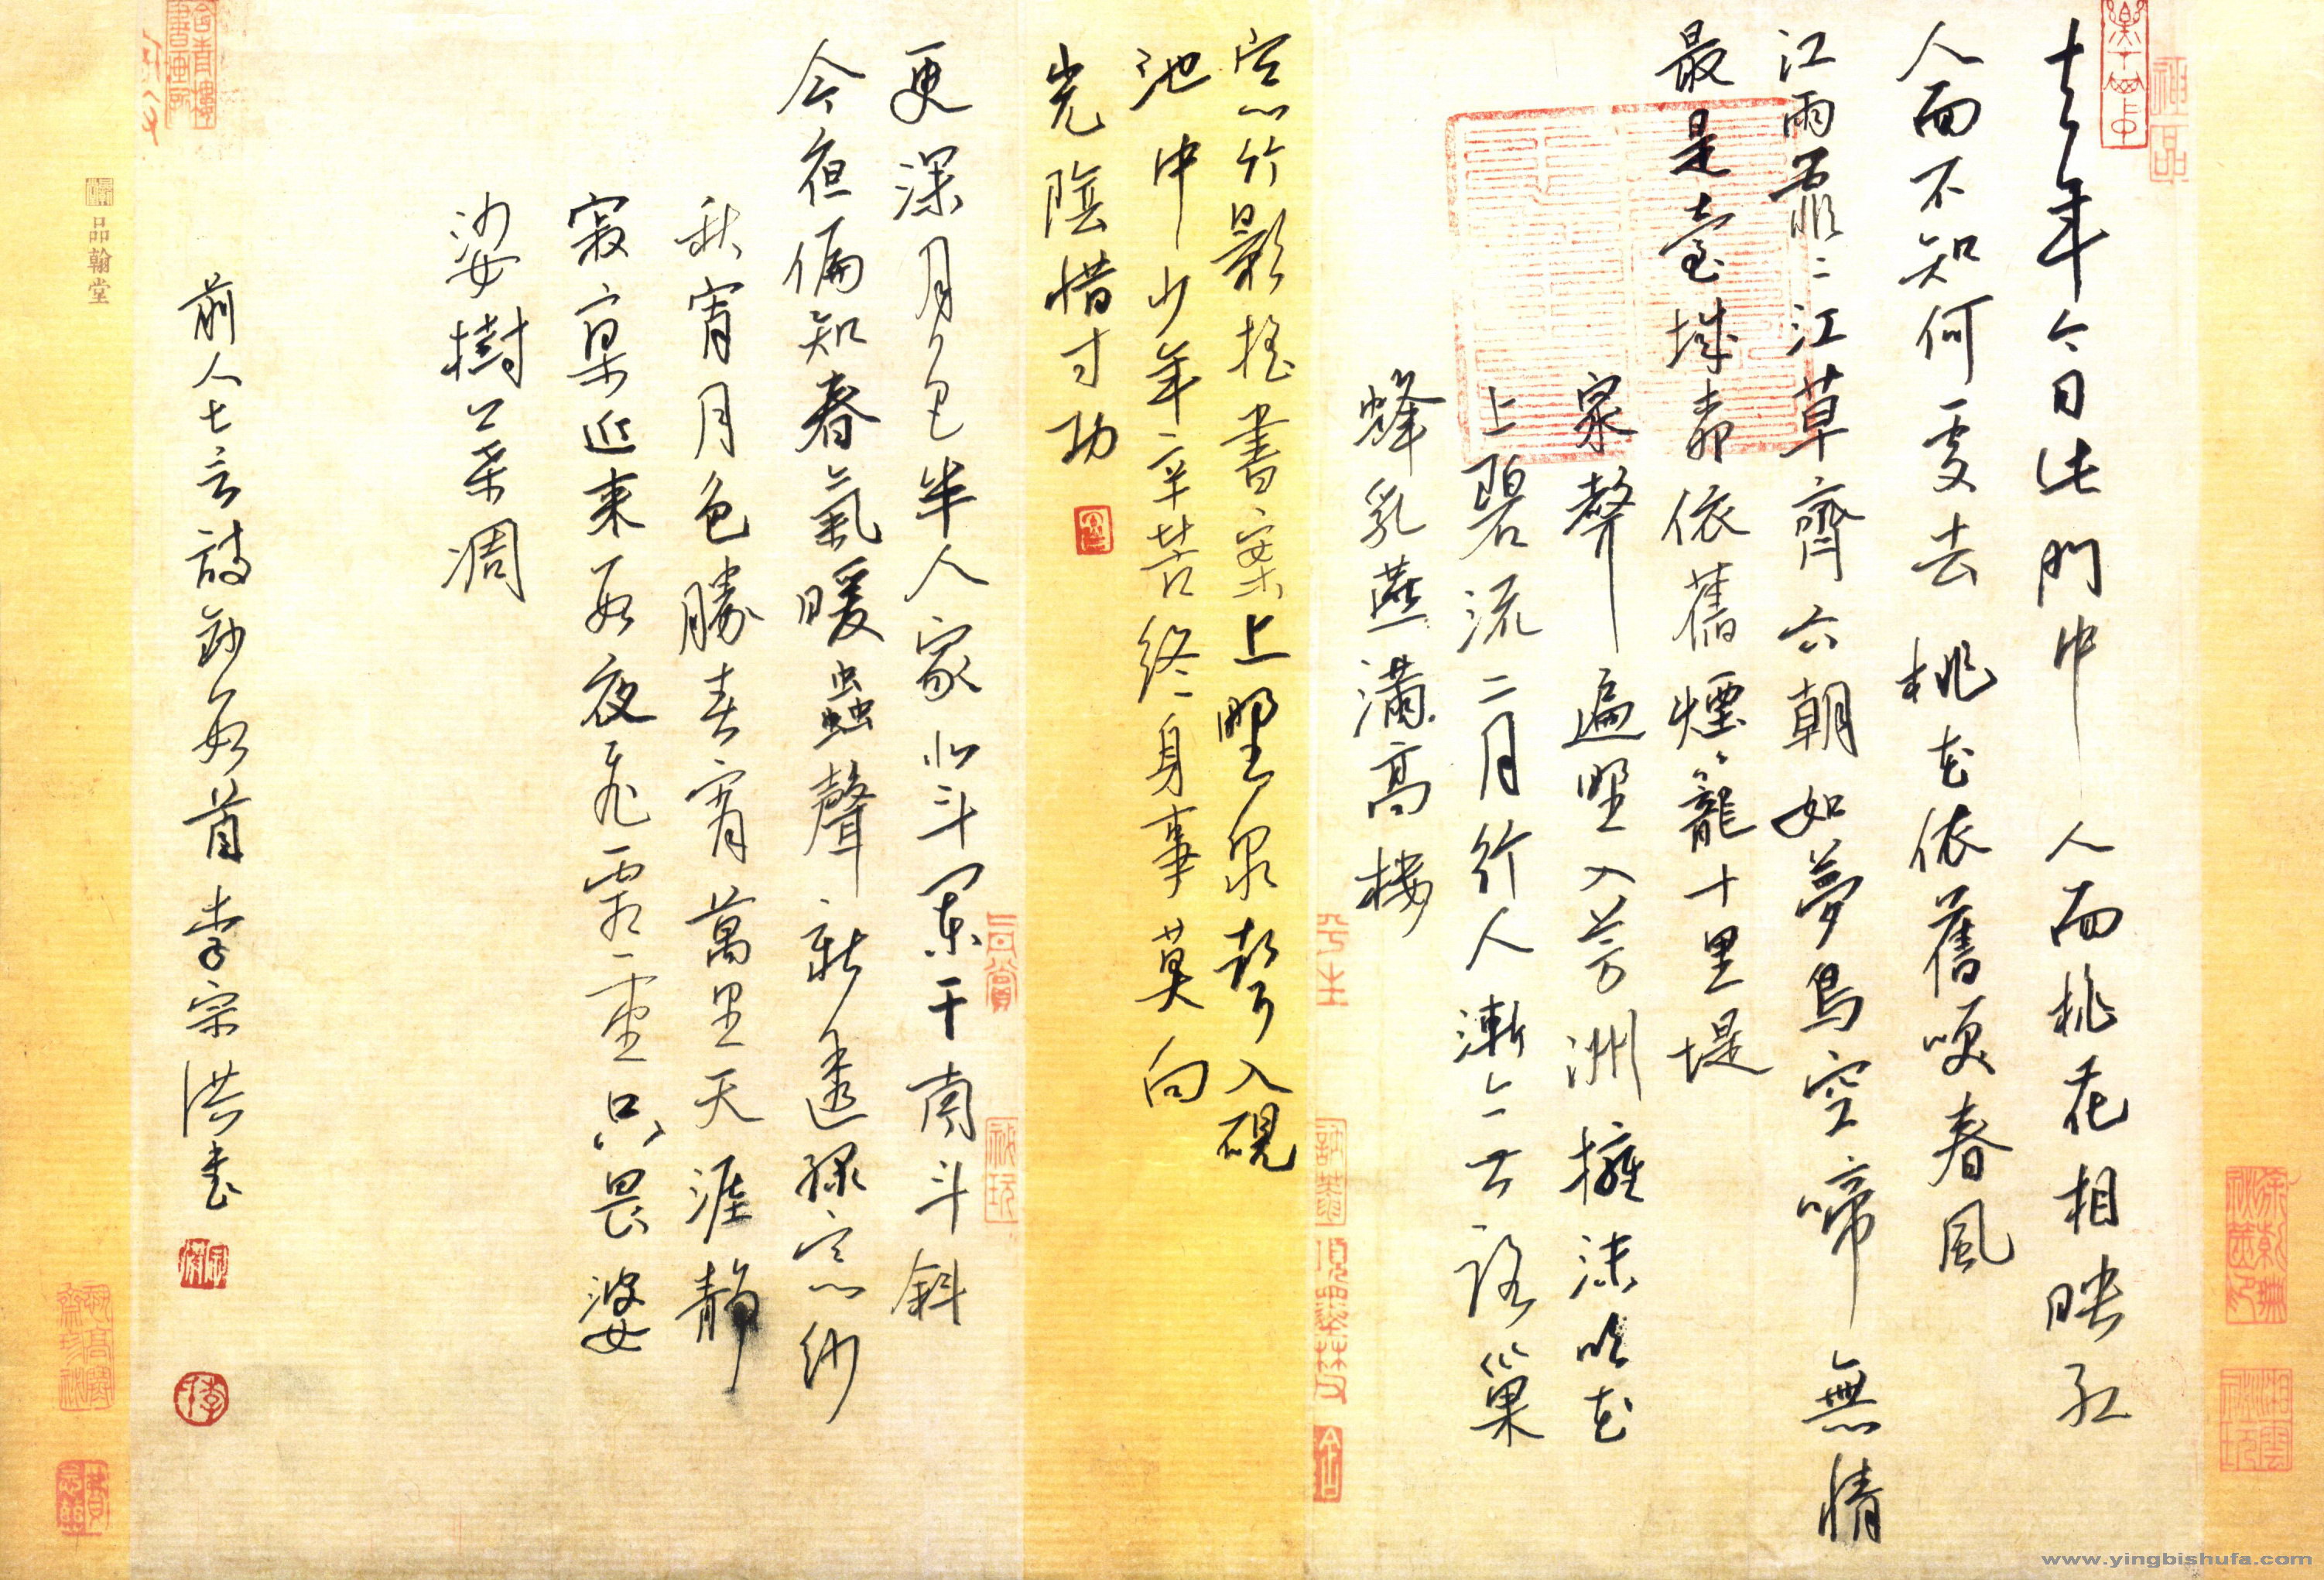 去年今日此門中人面桃花相映紅
人面不知何處去桃花依舊咲春風
江雨霏〻江草齊六朝如夢鳥空啼無情
最是臺城柳依舊煙籠十里堤
泉聲遍野入芳洲擁沫吹花
上碧流二月行人漸無路巢
蜂乳燕滿高樓
窓竹影搖書案上野泉聲入硯
池中少年辛苦終身事莫向
光陰惜寸功
更深月色半人家北斗闌干南斗斜
今夜偏知春氣暖蟲聲新透綠窓紗
秋宵月色勝春宵萬里天涯靜
寂寥近來數夜飛霜重只畏婆
娑樹葉凋
前人七言詩鈔數首李宗洪書
品翰堂
www.yingbishufa.com